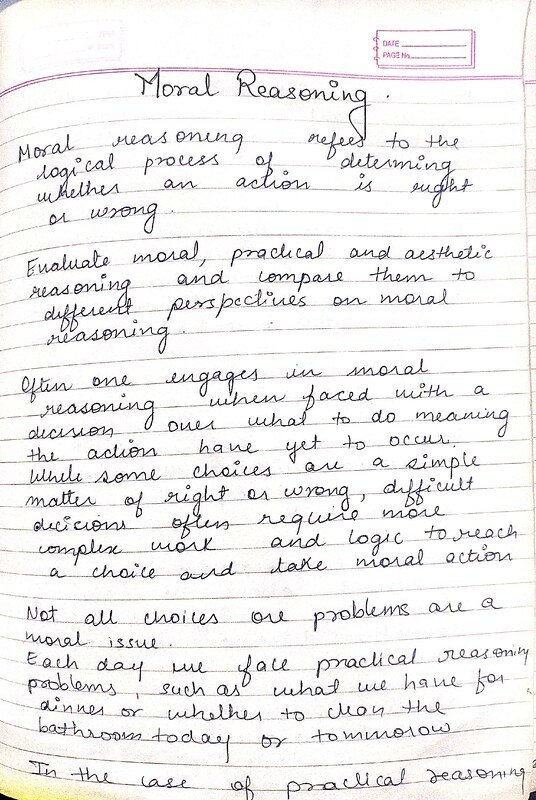 DATE
PAGE No.
Moral Reasoning.
Moral reasoning refees to the
logical process of determing
whether an action is right
or wrong.
Evaluate moral, practical and aesthetic
reasoning and compare them to
different perspectives on moral
reasoning.
Often one engages in moral
reasoning when faced with a
decision over what to do meaning
the action have yet to occur.
While some choices are a simple
matter of right or wrong, difficult
decicions often require more
complex work and logic to reach
a choice and take moral action
Not all choices or problems are a
moral issue.
Each day we face practical reasoning
problems, such as what we have for
dinner or whether to clean the
bathroom today or tommorow
In the case of practical reasoning